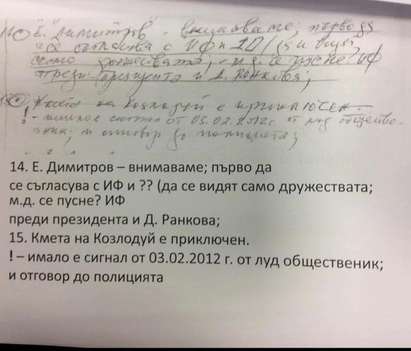 14. Е. Димитров - внимаваме; първо да
се съгласува с ИФ и ДО/(да видят
само дружествата; м.д. се пусне ИФ
преди президента и Д. Ранкова;
15. Кмета на Козлодуй е приключен.
! - имало е сигнал от 03.02.2012 г. от луд обществе-
ник; и отговор до полицията;
14. Е. Димитров – внимаваме; първо да
се съгласува с ИФ и ?? (да се видят само дружествата;
м.д. се пусне? ИФ
преди президента и Д. Ранкова;
15. Кмета на Козлодуй е приключен.
! – имало е сигнал от 03.02.2012 г. от луд общественик;
и отговор до полицията